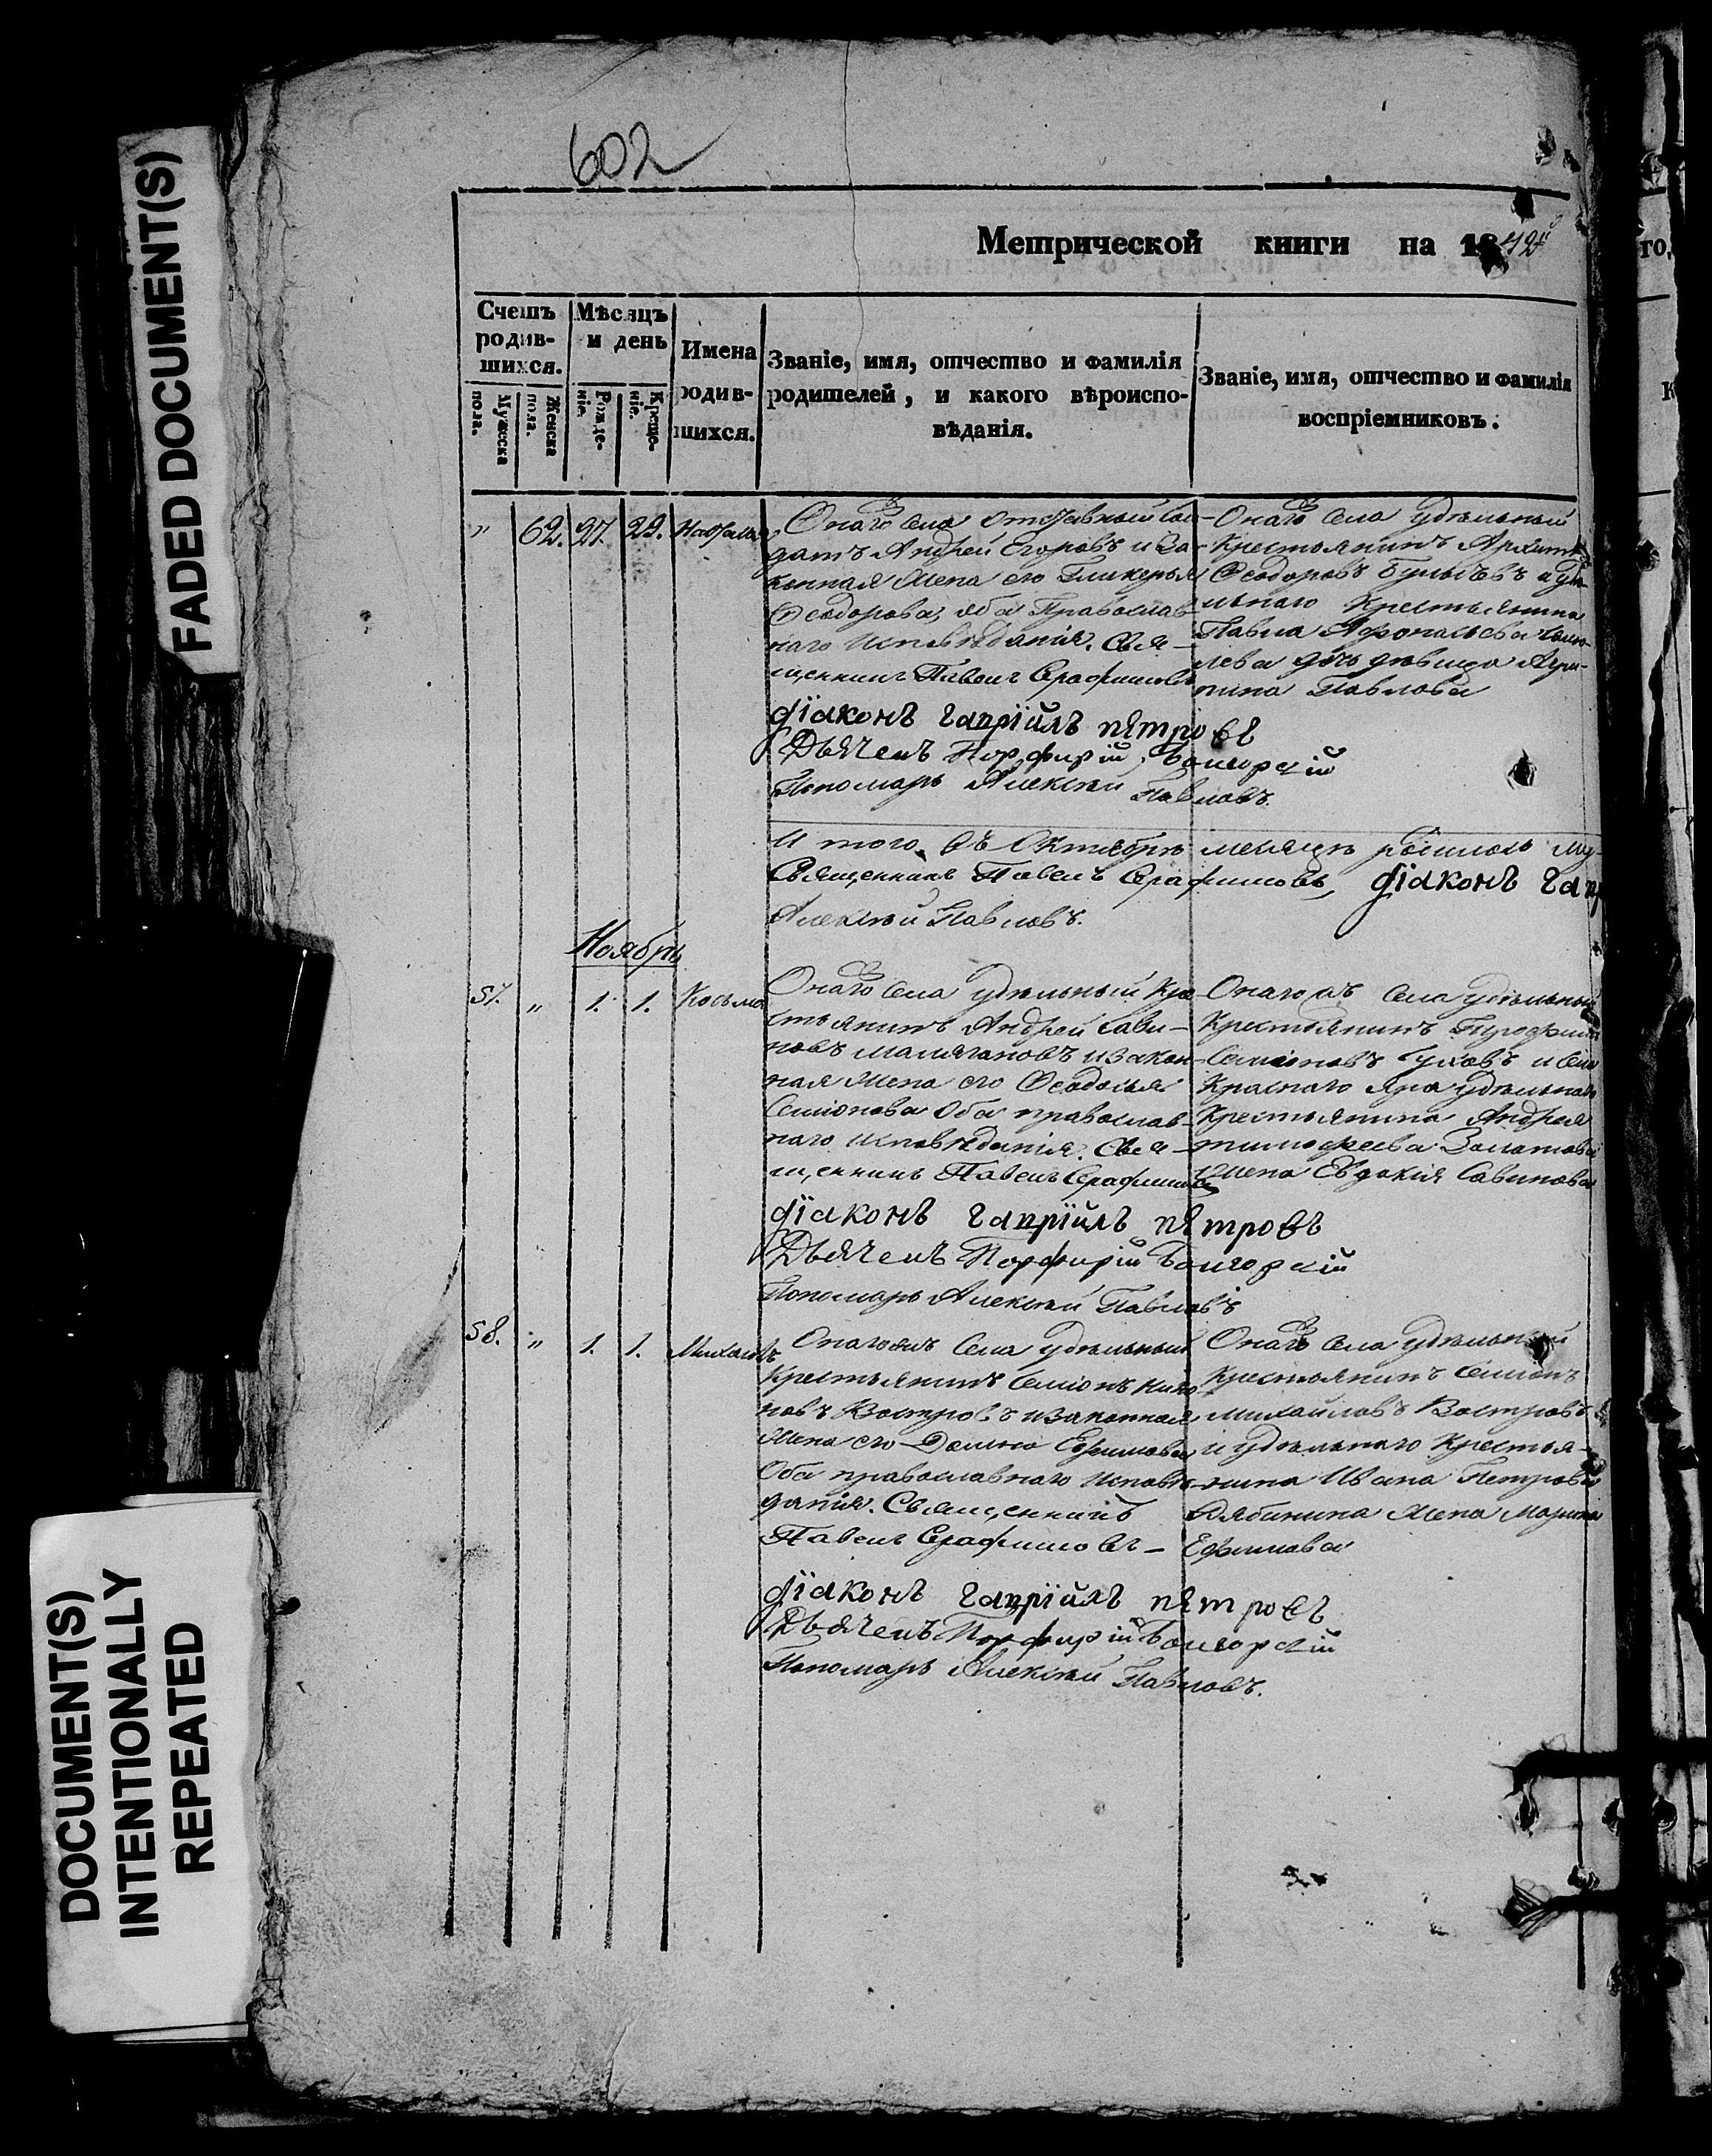 FADED DOCUMENT(S)
DOCUMENT(S)
INTENTIONALLY
REPEATED
602
Метрической книги на 1842й
Счетъ
родив-
шихся.
Мѣсяцъ
и день
Имена
родив-
шихся.
Званіе, имя, отчество и фамилія
родителей, и какого вѣроиспо-
вѣданія.
Званіе, имя, отчество и фамилія
воспріемниковъ.
Мужеска
пола.
Женска
пола.
Рожде-
ніе.
Креще-
ніе.
" 62. 27. 29.
Онаго Села отставный Сол-
датъ Андрей Егоровъ и За-
конная Жена его Гликерья
Ѳеодорова, оба Православ-
наго Исповѣданія. Свя-
щенникъ Павелъ Серафимовъ
діаконъ гапріилъ пятровъ
Дьячекъ Порфирій
Пономарь Алексѣй Павловъ.
Онаго Села удѣльный
Крестьянинъ
Ѳеодоровъ
Крестьянина
Павла
дочь девица
Павлова
Итого въ Октябрѣ месяцѣ
Священникъ Павелъ Серафимовъ, діаконъ гапр
Алексѣй Павловъ.
Ноябрь
57. " 1. 1. Косьма
Онаго Села удѣльный Кре-
стьянинъ Андрей Сави-
новъ Малягановъ и Закон-
ная Жена его Ѳеодосья
Семіонова Оба православ-
наго Исповѣданія. Свя-
щенникъ Павелъ Серафимовъ
діаконъ гапріилъ пятровъ
Дьячекъ Порфирій
Пономарь Алексѣй Павловъ
Онаго жъ Села удѣльный
Крестьянинъ
Семіоновъ Гуховъ и Села
Краснаго Яра удѣльнаго
Крестьянина Андрея
тимофеева
Жена Евдокия Савинова
58. " 1. 1. Михаилъ
Онагожъ Села удѣльный
Крестьянинъ Семіонъ
новъ Востровъ и Законная
Жена его Домна Ефимова
Оба православнаго Исповѣ-
данія. Священникъ
Павелъ Серафимовъ -
діаконъ гапріилъ пятровъ
Дьячекъ Порфирій
Пономарь Алексѣй Павловъ.
Онаго Села удѣльный
Крестьянинъ Семіонъ
Михайловъ Востровъ
и удѣльнаго Крестья-
нина Ивана Петрова
Рябинина Жена Марина
Ефимова